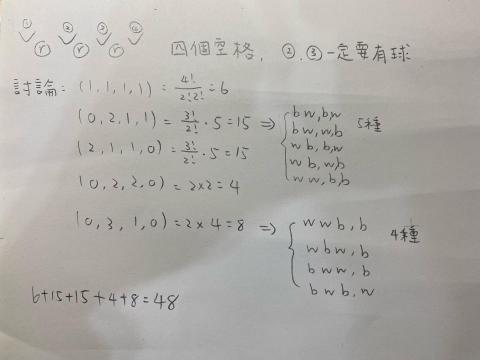 ① ② ③ ④
r r r
四個空格，②.③一定要有球
討論：(1,1,1,1) = 4!/2!2! = 6
(0,2,1,1) = 3!/2! · 5 = 15 ⇒ 5種
bw,bw
bw,wb
wb,bw
wb,wb
ww,bb
(2,1,1,0) = 3!/2! · 5 = 15
(0,2,2,0) = 2×2 = 4
(0,3,1,0) = 2×4 = 8 ⇒ 4種
wwb,b
wbw,b
bww,b
bwb,w
6+15+15+4+8=48